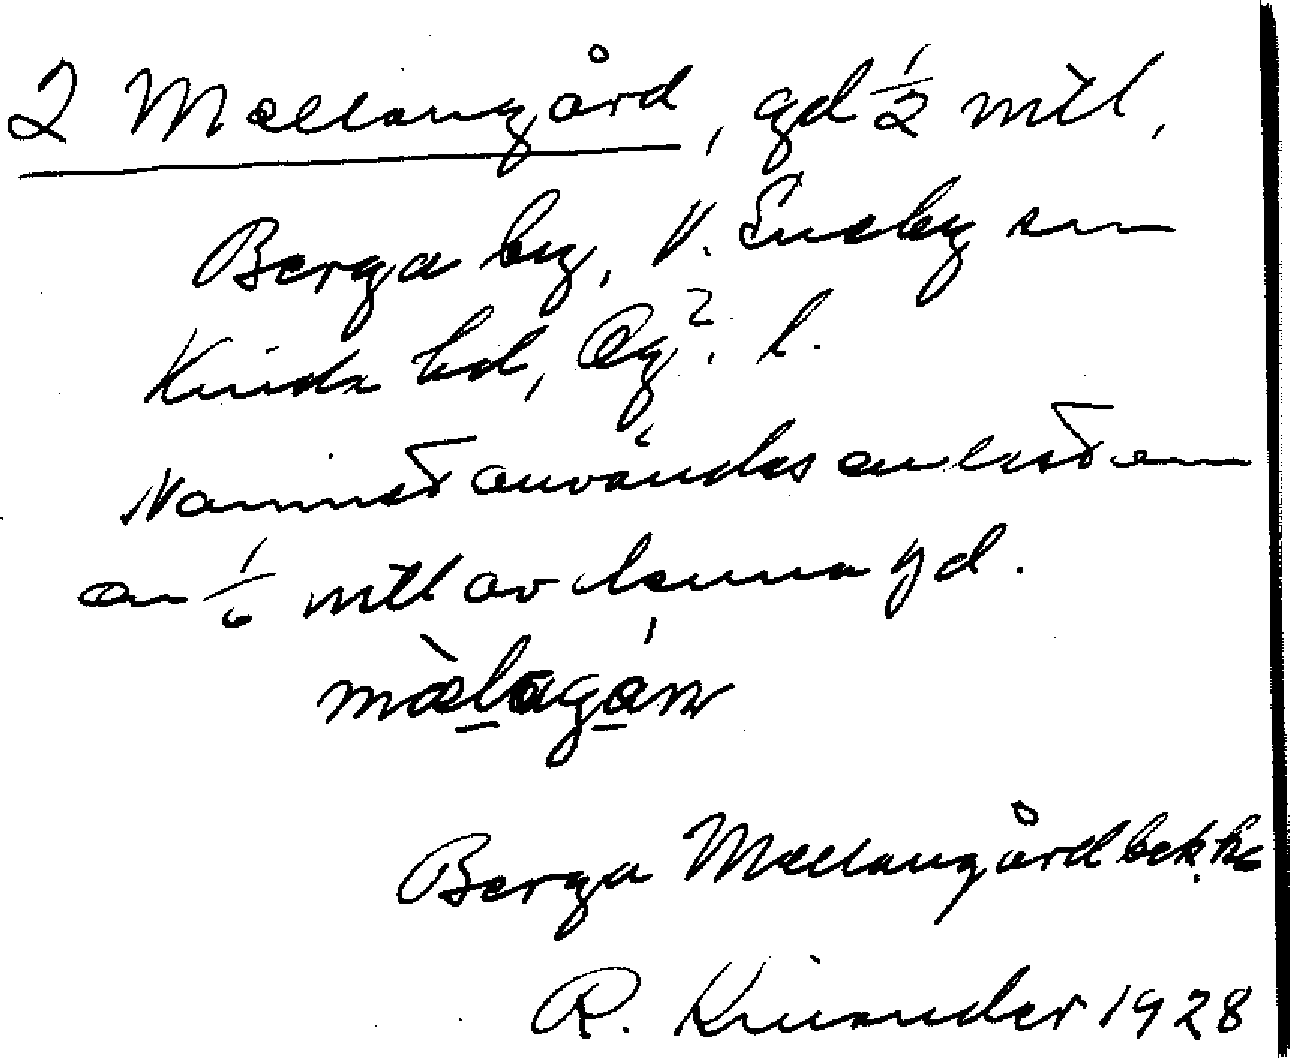 2 Mellangård, gd 1/2 mtl,
Berga by, V. Eneby sn
Kinda hd, Ög. l.
Namnet användes endast om
en 1/6 mtl av denna gd.
Berga Mellangård
R. Kinander 1928